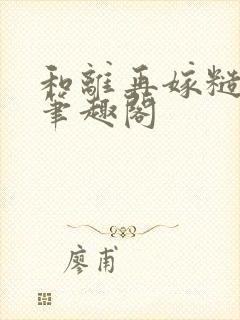 和離再嫁糙
筆趣閣
廖甫